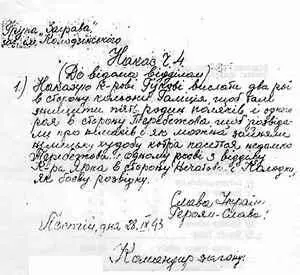 Група "Заграва"
Загін ім. Колодзінського
Наказ Ч. 4
(До відома відділам)
1.) Наказую к-рові Гукові вислати два рої
в сторону кольонії Галіція щоб там
знищити пять родин поляків і одного
роя в сторону Теребетова щоб розвіда-
ли про німаків і як можна зайняли
німецьку худобу котра пасется недалеко
Теребетова. і одному роєві з відділу
К-ра Ярка в сторону і Колодки,
як боєву розвідку.
Слава Україні
Героям-Слава!
дня 28. IV 43
Командир загону.